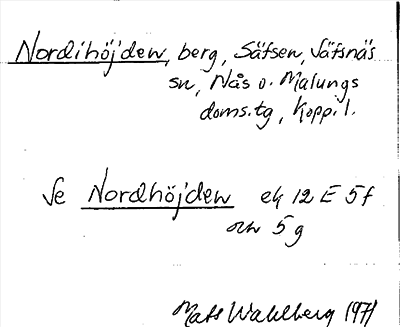 Nordihöjden, berg, Säfsen, Säfsnäs
sn, Nås o. Malungs
doms.tg, Kopp. l.
Se Nordhöjden ek 12 E 5f
och 5g
Mats Wahlberg 1971